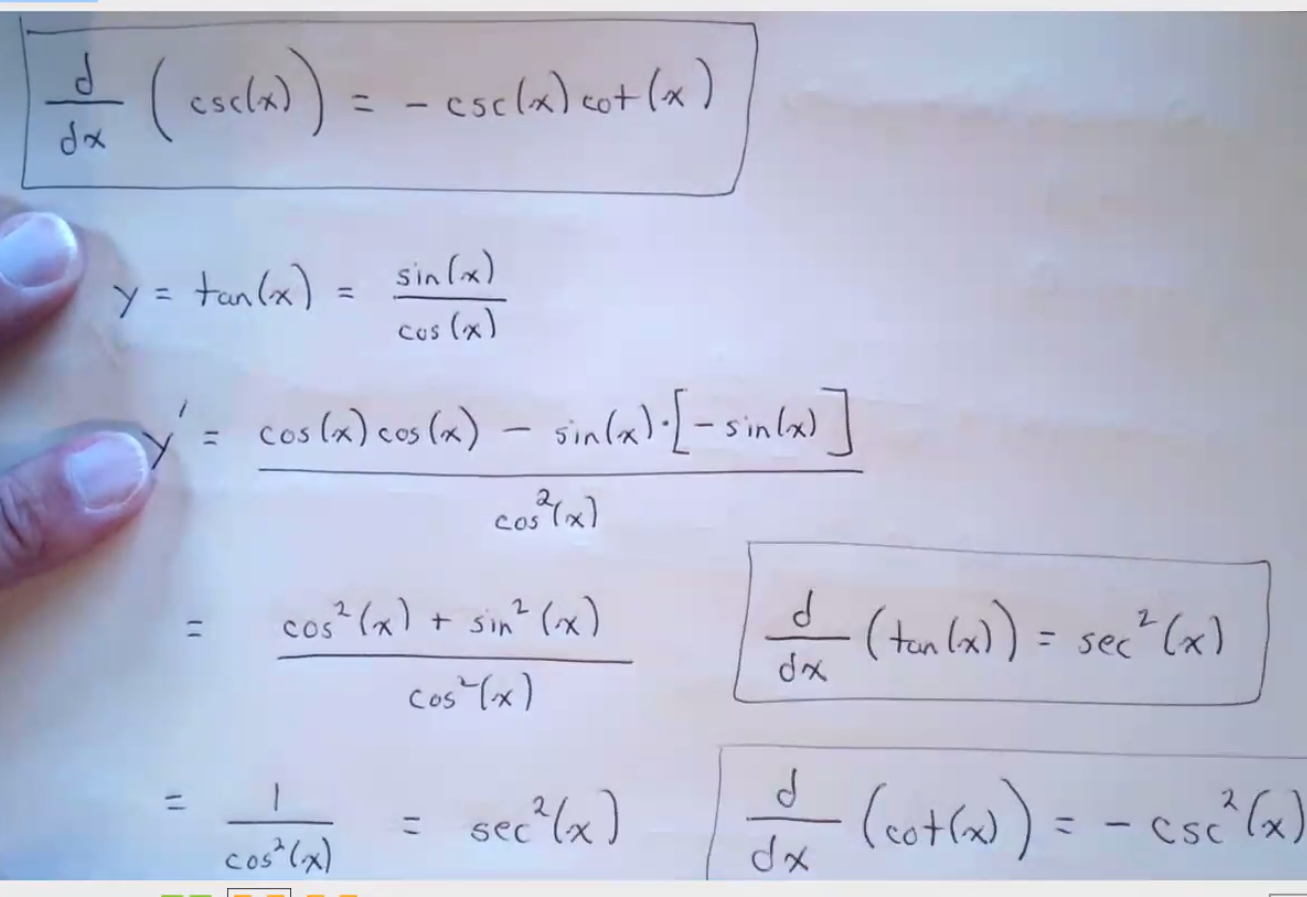 d/dx ( csc(x) ) = - csc(x) cot(x)
y = tan(x) = sin(x) / cos(x)
y' = cos(x) cos(x) - sin(x) · [ - sin(x) ] / cos²(x)
= cos²(x) + sin²(x) / cos²(x)
d/dx ( tan(x) ) = sec²(x)
= 1 / cos²(x) = sec²(x)
d/dx ( cot(x) ) = - csc²(x)